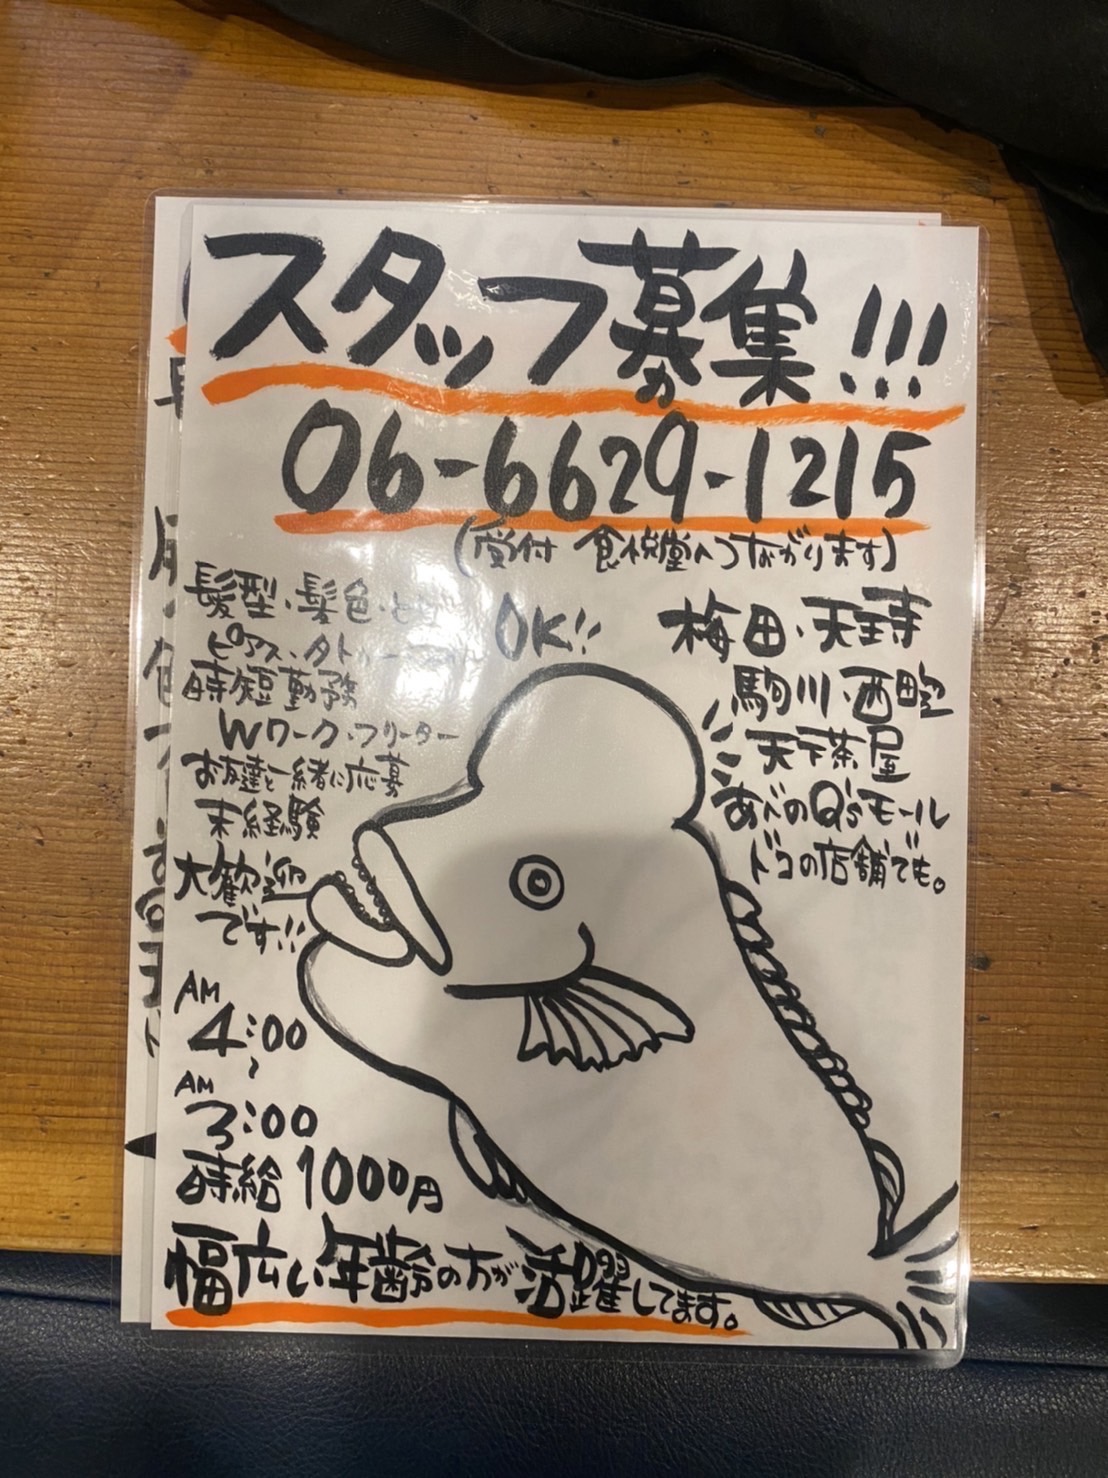 スタッフ募集!!!
06-6629-1215
(受付 食悦堂へつながります)
髪型・髪色・
ピアス・タトゥー
OK!!
時短勤務
Wワーク・フリーター
お友達と一緒に応募
未経験
大歓迎
です!!
梅田・天王寺
駒川・西田辺
天下茶屋
あべのQ'sモール
ドコの店舗でも。
AM
4:00
~
AM
3:00
時給1000円
幅広い年齢の方が活躍してます。